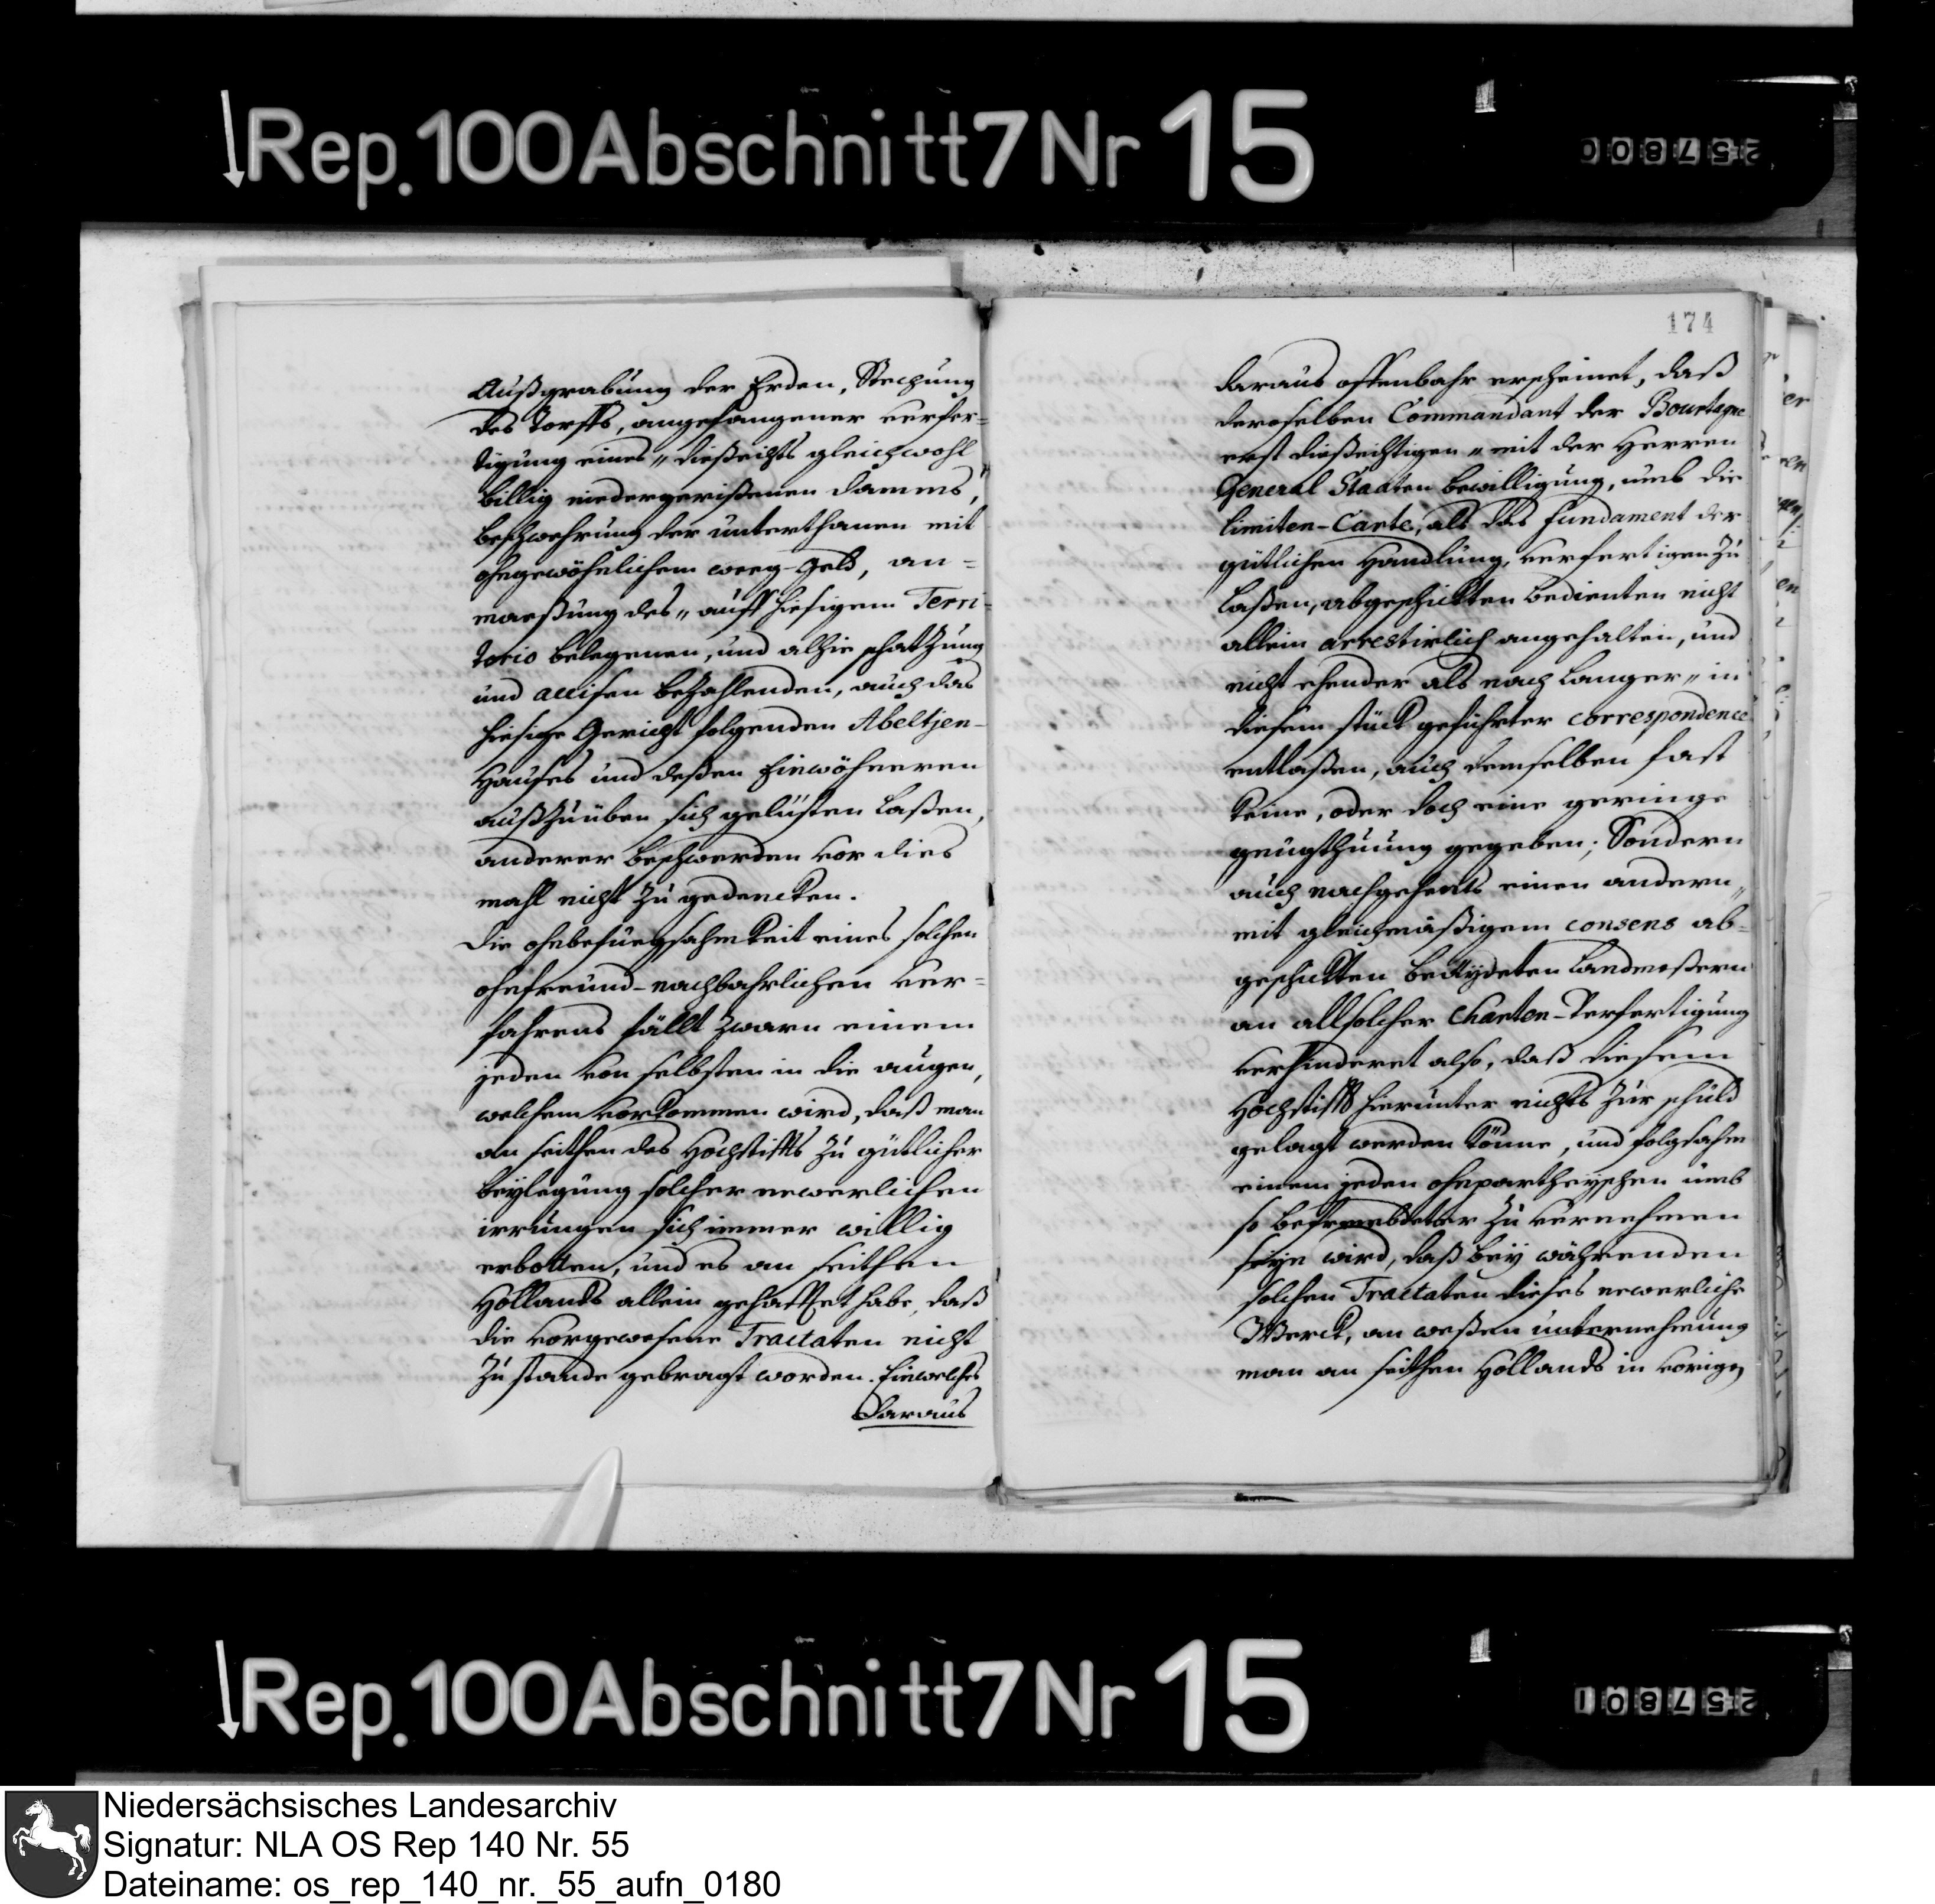 Rep. 100 Abschnitt 7 Nr 15
257800
Außgrabung der Erden, Stechung
des Torffs, angefangener verfer=
tigung eines „ dießeithß gleichwohl
billig niedergerißenen damms,
beschwehrung der unterthanen mit
ohngewöhnlichem weeg-geld, an=
maeßung des „ auff hiesigem Terri-
torio belegenen, und alhie schatzung
und accisen bezahlenden, auch das
hiesige Gericht folgenden Abeltjen-
Hauses und deßen Einwöhneren
außzuüben sich gelüsten laßen,
anderer beschwerden vor dies
mahl nicht zu gedencken.
die ohnbefuegsahmkeit eines solchen
ohnfreund-nachbahrlichen ver=
fahrens fällt zwarn einem
jeden von selbsten in die augen,
welchem vorkommen wird, daß man
an seithen des Hochstiffts zu gütlicher
beylegung solcher newerlichen
irrungen sich immer willig
erbotten, und es an seithen
Hollands allein gehafftet habe, daß
die vorgewesene Tractaten nicht
zu stande gebragt worden. Einwelches
daraus
174
daraus offenbahr erscheinet, daß
deroselben Commandant der Bourtagne
erst dießeithigen „ mit der Herren
General Staaten bewilligung, umb die
limiten-Carte, als das fundament der
gütlichen Handlung, verfertigen zu
laßen, abgeschickten bedienten nicht
allein arrestirlich angehalten, und
nicht ehender als nach langer „ in
diesem stück geführter correspondence
entlaßen, auch demselben fast
keine, oder doch eine geringe
genugthuung gegeben; Sondern
auch nachgehents einen andern „
mit gleichmäßigem consens ab=
geschickten beeydeten Landmeßern
an allsolcher Charten-Verfertigung
verhinderet also, daß diesem
Hochstifft hierunter nichts zur schuld
gelagt werden könne, und folgsahm
einem jeden ohnpartheyschen umb
so befrembdeter zu vernehmen
seyn wird, daß bey währenden
solchen Tractaten dieses newerliche
Werck, an weßen unternehmung
man an seithen Hollands in vorigen
Rep. 100 Abschnitt 7 Nr 15
257801
Niedersächsisches Landesarchiv
Signatur: NLA OS Rep 140 Nr. 55
Dateiname: os_rep_140_nr._55_aufn_0180